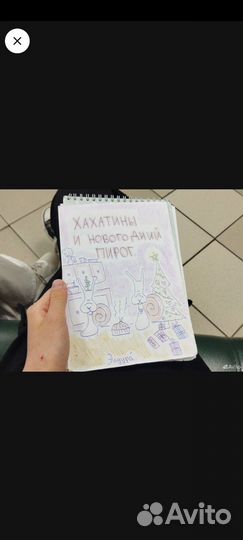 ХАХАТИНЫ
И НОВОГОДНИЙ
ПИРОГ
Avito